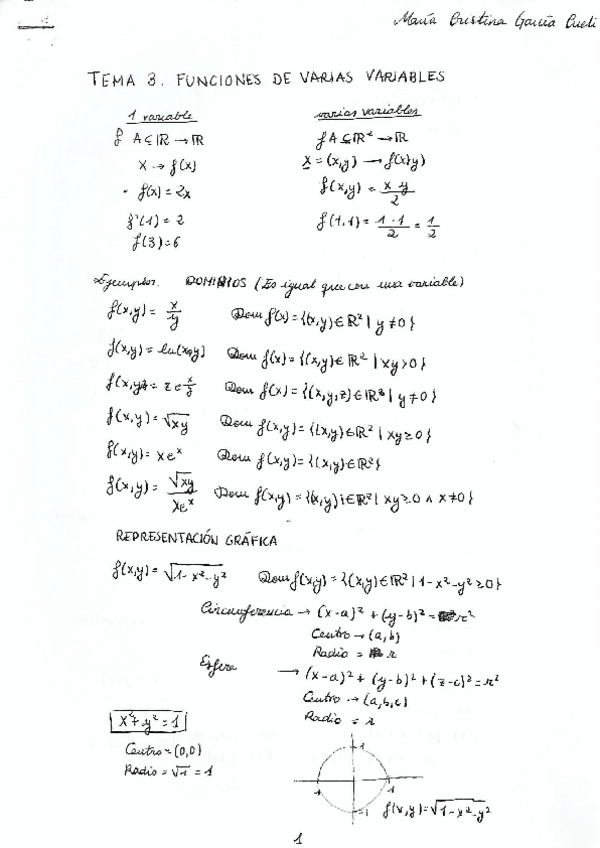 María Cristina García
TEMA 3. FUNCIONES DE VARIAS VARIABLES
1 variable
f A⊆ℝ → ℝ
x → f(x)
· f(x) = 2x
f'(1) = 2
f(3) = 6
varias variables
f A⊆ℝ² → ℝ
x = (x,y) → f(x,y)
f(x,y) = x y / 2
f(1,1) = 1·1 / 2 = 1/2
Ejemplos. DOMINIOS (Es igual que con una variable)
f(x,y) = x/y Dom f(x) = {(x,y)∈ℝ² | y ≠ 0}
f(x,y) = ln(xy) Dom f(x) = {(x,y)∈ℝ² | xy > 0}
f(x,y,z = z e x/y Dom f(x) = {(x,y,z)∈ℝ³ | y ≠ 0}
f(x,y) = √xy Dom f(x,y) = {(x,y)∈ℝ² | xy ≥ 0}
f(x,y) = xeˣ Dom f(x,y) = {(x,y)∈ℝ²}
f(x,y) = √xy / xeˣ Dom f(x,y) = {(x,y)∈ℝ² | xy ≥ 0 ∧ x ≠ 0}
REPRESENTACIÓN GRÁFICA
f(x,y) = √1-x²-y² Dom f(x,y) = {(x,y)∈ℝ² | 1-x²-y² ≥ 0}
Circunferencia → (x-a)² + (y-b)² = r²
Centro → (a,b)
Radio = r
Esfera → (x-a)² + (y-b)² + (z-c)² = r²
Centro → (a,b,c)
Radio = r
x²+y² = 1
Centro = (0,0)
Radio = √1 = 1
1
1
1
-1
f(x,y) = √1-x²-y²
1